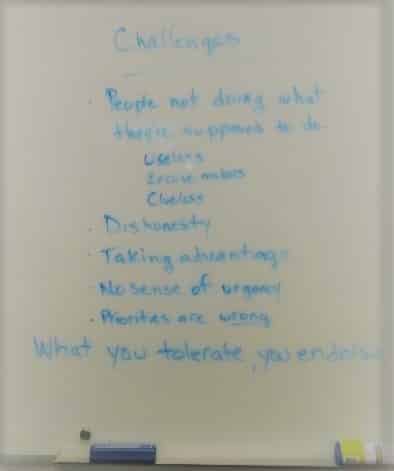 Challenges
· People not doing what
they're supposed to do
Useless
Excuse makers
Clueless
· Dishonesty
· Taking advantage
· No sense of urgency
· Priorities are wrong
What you tolerate, you endorse